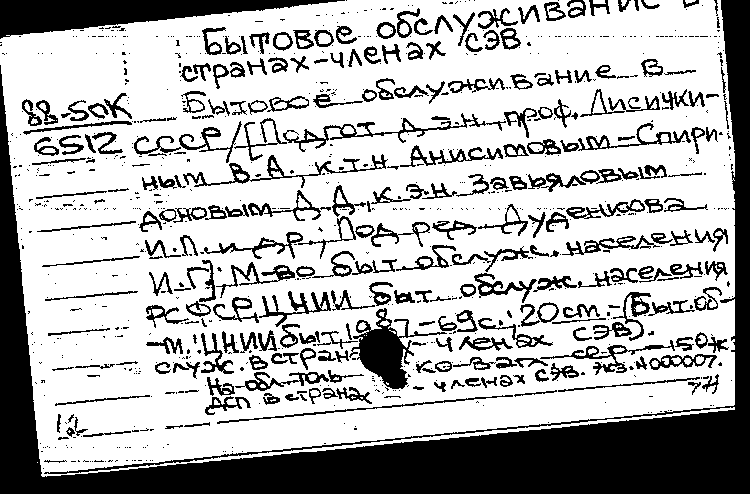 Бытовое обслуживание в
странах-членах СЭВ.
88-5ОК
6512
Бытовое обслуживание в
СССР /[Подгот. д.э.н., проф. Лисички-
ным В.А., к.т.н. Анисимовым-Спири-
доновым Д.Д., к.э.н. Завьяловым
И.П. и др.; Под ред. Дуденкова
И.Г.]; М-во быт. обслуж. населения
РСФСР, ЦНИИ быт. обслуж. населения
-М.: ЦНИИбыт, 1987. -69с.; 20см. -(Быт. об-
служ. в стра х членах СЭВ).
На обл. толь ко загл. сер. -150 экз
ДСП в странах -членах СЭВ. Экз. N000007.